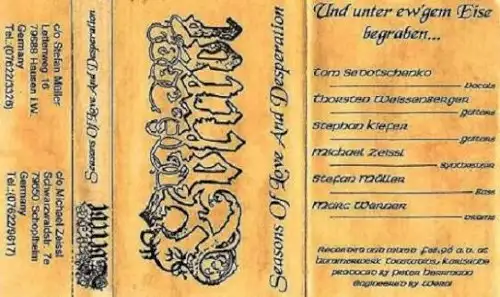 c/o Stefan Müller
Lettenweg 16
79688 Hausen i.W.
Germany
c/o Michael Zeissl
Schwarzwaldstr. 7e
79650 Schopfheim
Germany
Tel.:(07622/9617)
Seasons Of Love And Desperation
Seasons Of Love And Desperation
Und unter ew'gem Eise
begraben...
Tom Sedotschenko
Vocals
Thorsten Weissenberger
Guitars
Stephan Kiefer
Guitars
Michael Zeissl
Synthesizer
Stefan Müller
Bass
Marc Werner
Drums
Recorded and mixed Feb.96 a.d. at
Hammerwerk Tonstudios, Karlsruhe
produced by Peter Herrmann
engineered by Werni